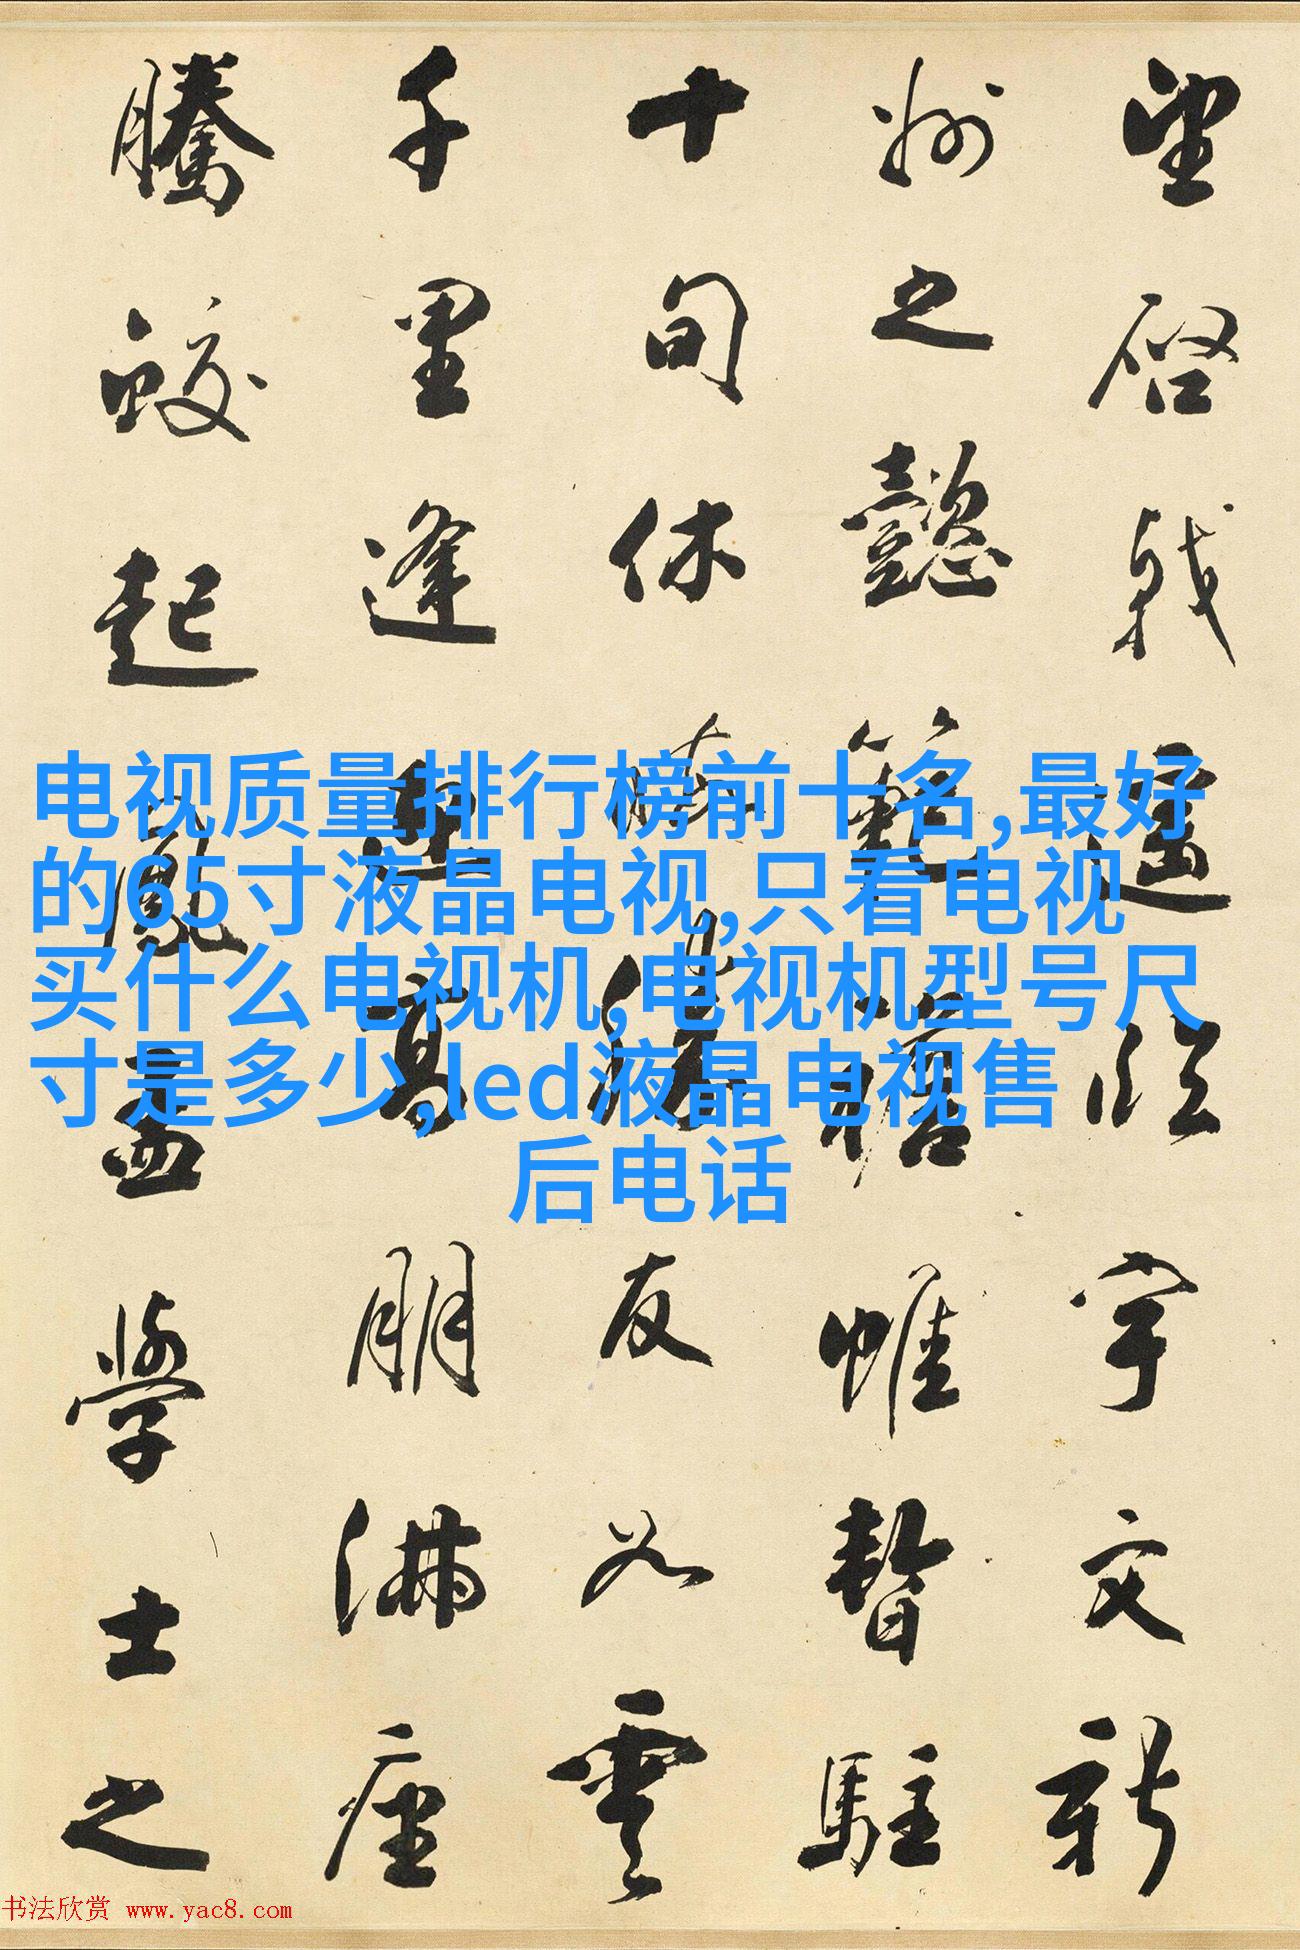 望啓戟遥臨宇文新
州之懿範襜帷暫駐
十旬休暇勝友如雲
千里逢迎高朋滿座
騰蛟起鳳孟學士之
电视质量排行榜前十名,最好
的65寸液晶电视,只看电视
买什么电视机,电视机型号尺
寸是多少,led液晶电视售
后电话
书法欣赏 www.yac8.com